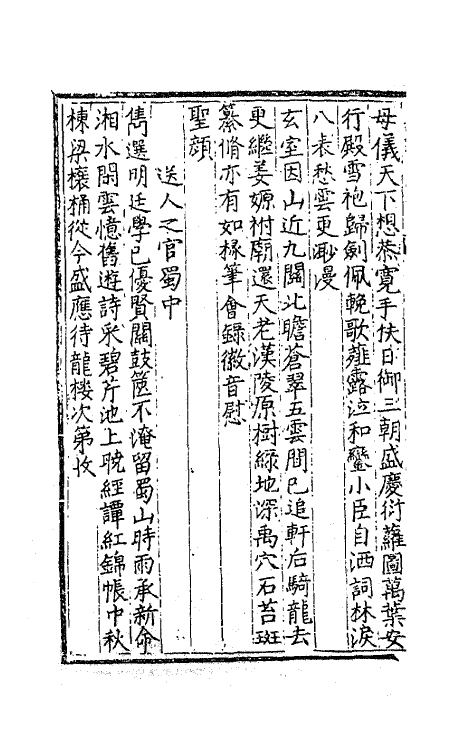 母儀天下想恭寛手伏日御三朝盛慶衍蘿圖萬葉安
行殿雪袍歸劍佩輓歌薤露泣和鑾小臣自洒詞林淚
八表愁雲更渺漫
玄室因山近九關北瞻蒼翠五雲間已追軒后騎龍去
更繼姜嫄祔廟還天老漢陵原樹綠地深禹穴石苔斑
纂脩亦有如椽筆會録徽音慰
聖顔
送人之官蜀中
雋選明廷學已優賢關鼓篋不淹留蜀山時雨承新命
湘水閑雲憶舊遊詩采碧芹池上晩經譚紅錦帳中秋
棟梁榱桷從今盛應待龍樓次第攷